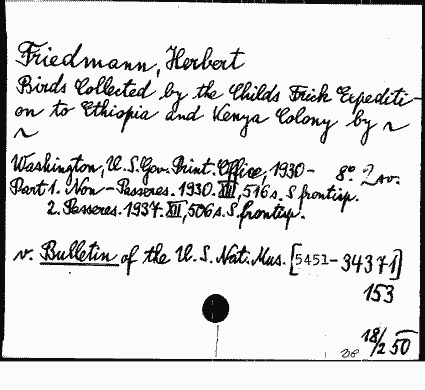 Friedmann, Herbert
Birds Collected by the Childs Frick Expediti-
on to Ethiopia and Kenya Colony by ~
~
Washington, U.S. Gov. Print. Office, 1930- 8° 2 sv.
Part 1. Non-Passeres. 1930. XIII, 516 s. S frontisp.
2. Passeres. 1937. XII, 506 s. S frontisp.
v. Bulletin of the U.S. Nat. Mus. [5451-34371]
153
18/2 50